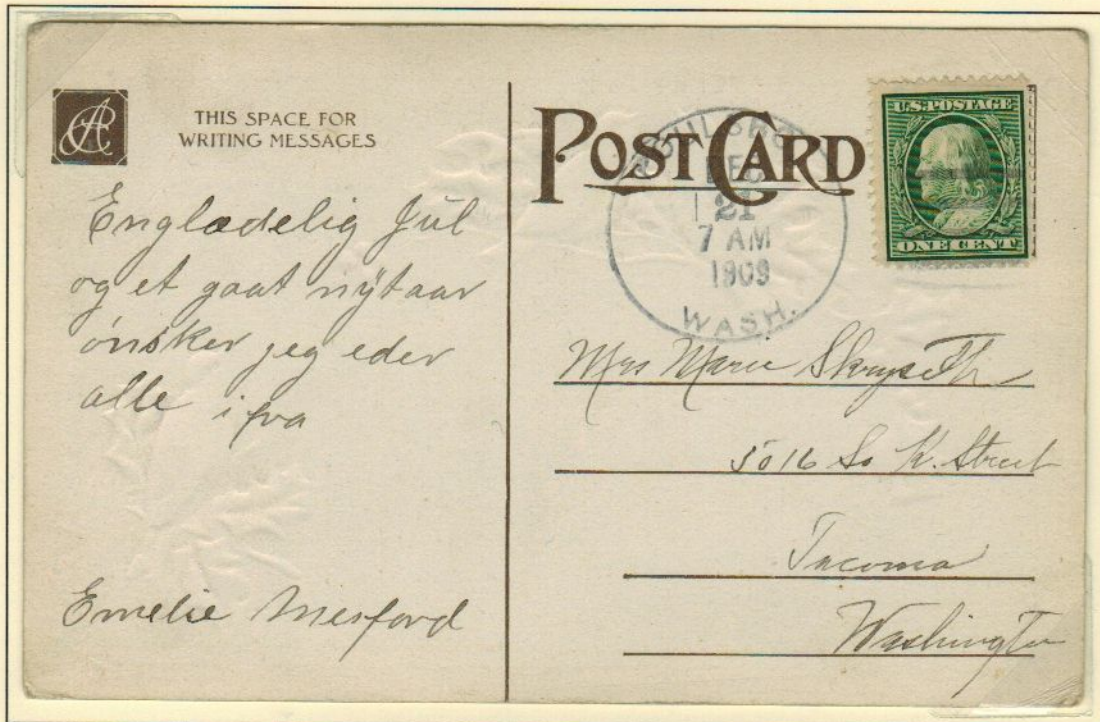 THIS SPACE FOR
WRITING MESSAGES
Englædelig Jul
og et gaat nÿtaar
ønsker jeg eder
alle ifra
Emelie Mesford
POST CARD
DEC
21
7 AM
1909
WASH.
U.S. POSTAGE
ONE CENT
Mrs Marie
5016 So K. Street
Tacoma
Washington